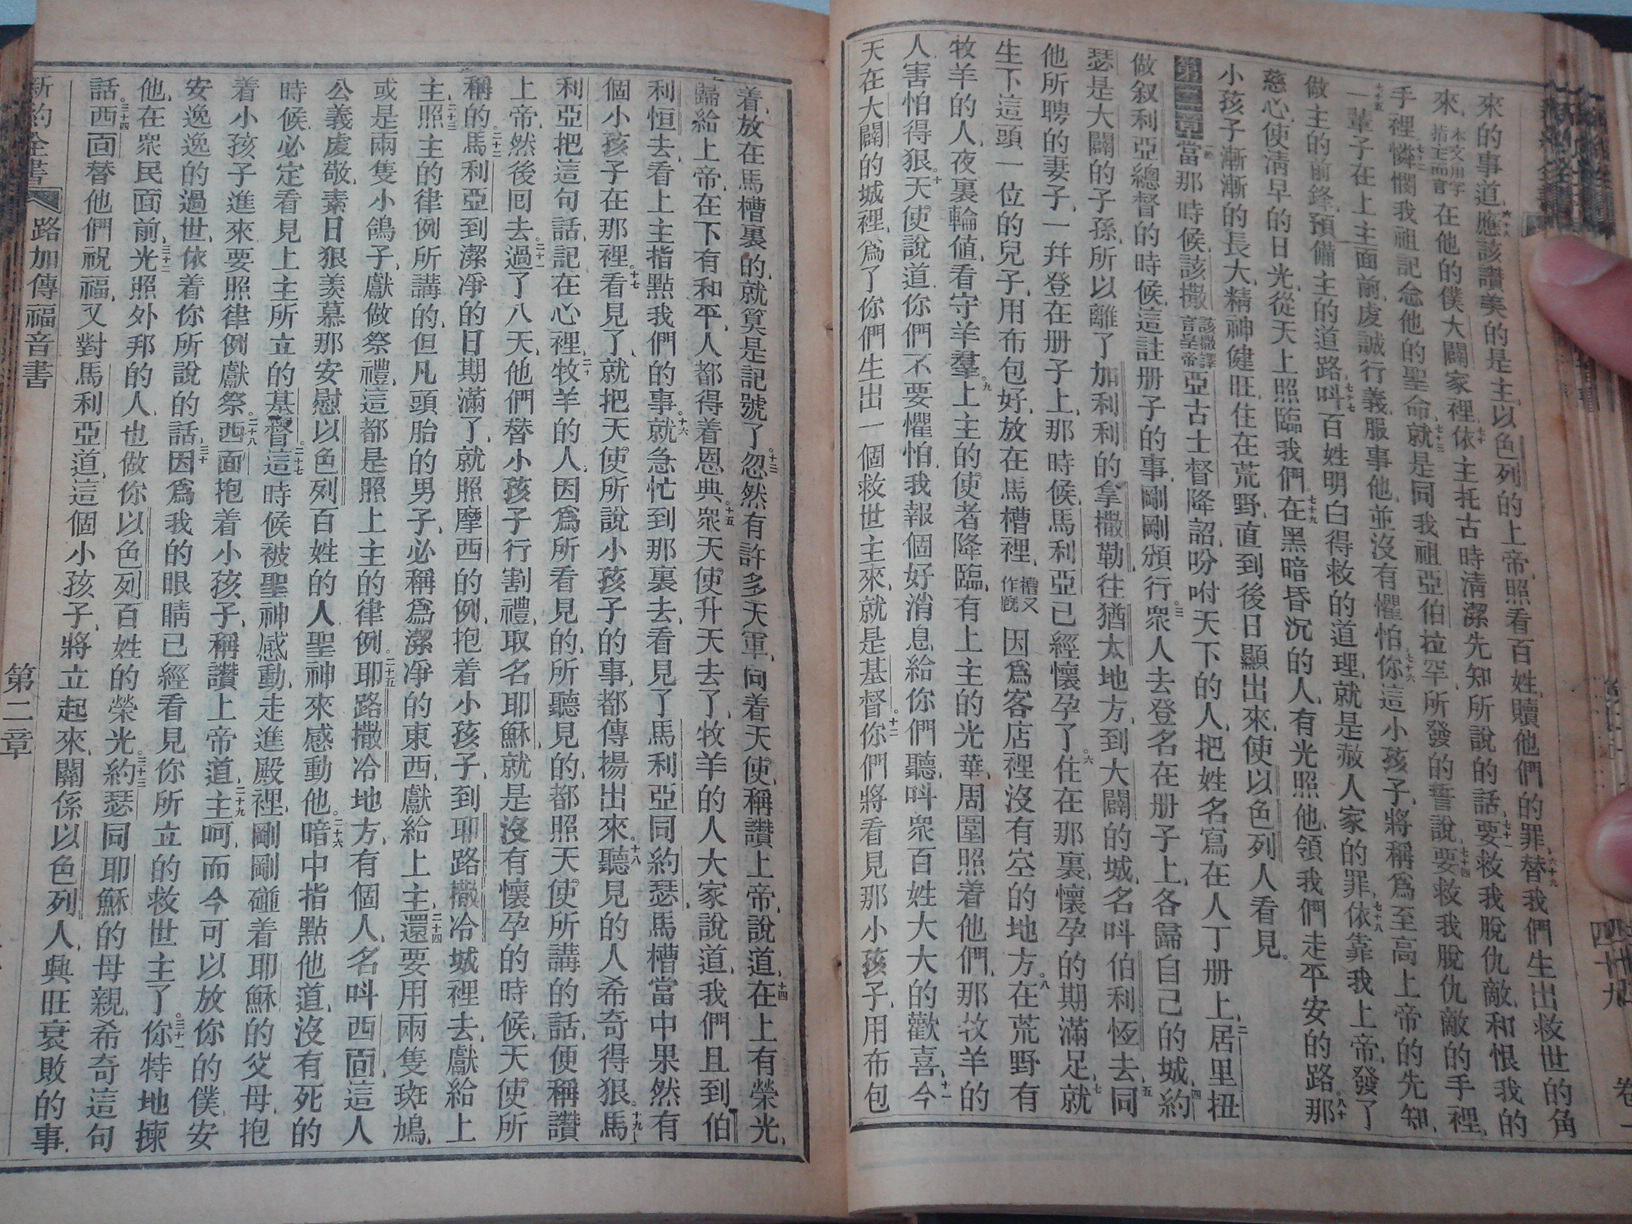 來的事道應該讚美的是主以色列的上帝照看百姓贖他們的罪六十九替我們生出救世的角
來本文用字指主而言在他的僕大闢家裡七十依主托古時清潔先知所說的話七十一要救我脫仇敵和恨我的
手裡七十二憐憫我祖記念他的聖命七十三就是同我祖亞伯拉罕所發的誓說七十四要救我脫仇敵的手裡
七十五一輩子在上主面前虔誠行義服事他並沒有懼怕七十六你這小孩子將稱爲至高上帝的先知
做主的前鋒預備主的道路七十七呌百姓明白得救的道理就是赦人家的罪七十八依靠我上帝發了
慈心使清早的日光從天上照臨我們七十九在黑暗昏沉的人有光照他領我們走平安的路八十那
小孩子漸漸的長大精神健旺住在荒野直到後日顯出來使以色列人看見
第二章一當那時候該撒該撒譯言皇帝亞古士督降詔吩咐天下的人把姓名寫在人丁册上二居里扭
做叙利亞總督的時候這註册子的事剛剛頒行三衆人去登名在册子上各歸自己的城四約
瑟是大闢的子孫所以離了加利利的拿撒勒往猶太地方到大闢的城名呌伯利恆去五同
他所聘的妻子一幷登在册子上那時候馬利亞已經懷孕了六住在那裏懷孕的期滿足七就
生下這頭一位的兒子用布包好放在馬槽裡槽又作廐因爲客店裡沒有空的地方八在荒野有
牧羊的人夜裏輪値看守羊羣九上主的使者降臨有上主的光華周圍照着他們那牧羊的
人害怕得狠十天使說道你們不要懼怕我報個好消息給你們聽呌衆百姓大大的歡喜十一今
天在大闢的城裡爲了你們生出一個救世主來就是基督十二你們將看見那小孩子用布包
着放在馬槽裏的就算是記號了十三忽然有許多天軍向着天使稱讚上帝說道十四在上有榮光
歸給上帝在下有和平人都得着恩典十五衆天使升天去了牧羊的人大家說道我們且到伯
利恒去看上主指點我們的事十六就急忙到那裏去看見了馬利亞同約瑟馬槽當中果然有
個小孩子在那裡十七看見了就把天使所說小孩子的事都傳揚出來十八聽見的人希奇得狠十九馬
利亞把這句話記在心裡二十牧羊的人因爲所看見的所聽見的都照天使所講的話便稱讚
上帝然後囘去二十一過了八天他們替小孩子行割禮取名耶穌就是沒有懷孕的時候天使所
稱的二十二馬利亞到潔凈的日期滿了就照摩西的例抱着小孩子到耶路撒冷城裡去獻給上
主二十三照主的律例所講的但凡頭胎的男子必稱爲潔凈的東西獻給上主二十四還要用兩隻斑鳩
或是兩隻小鴿子獻做祭禮這都是照上主的律例二十五耶路撒冷地方有個人名呌西面這人
公義虔敬素日狠羡慕那安慰以色列百姓的人聖神來感動他二十六暗中指點他道沒有死的
時候必定看見上主所立的基督二十七這時候被聖神感動走進殿裡剛剛碰着耶穌的父母抱
着小孩子進來要照律例獻祭二十八西面抱着小孩子稱讚上帝道二十九主呵而今可以放你的僕安
安逸逸的過世依着你所說的話三十因爲我的眼睛已經看見你所立的救世主了三十一你特地揀
他在衆民面前三十二光照外邦的人也做你以色列百姓的榮光三十三約瑟同耶穌的母親希奇這句
話三十四西面替他們祝福又對馬利亞道這個小孩子將立起來關係以色列人興旺衰敗的事
新約全書 路加傳福音書 第二章